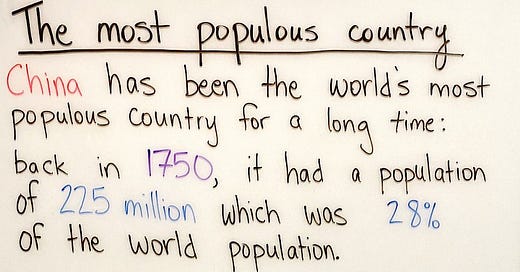 The most populous country
China has been the world's most
populous country for a long time:
back in 1750, it had a population
of 225 million which was 28%
of the world population.